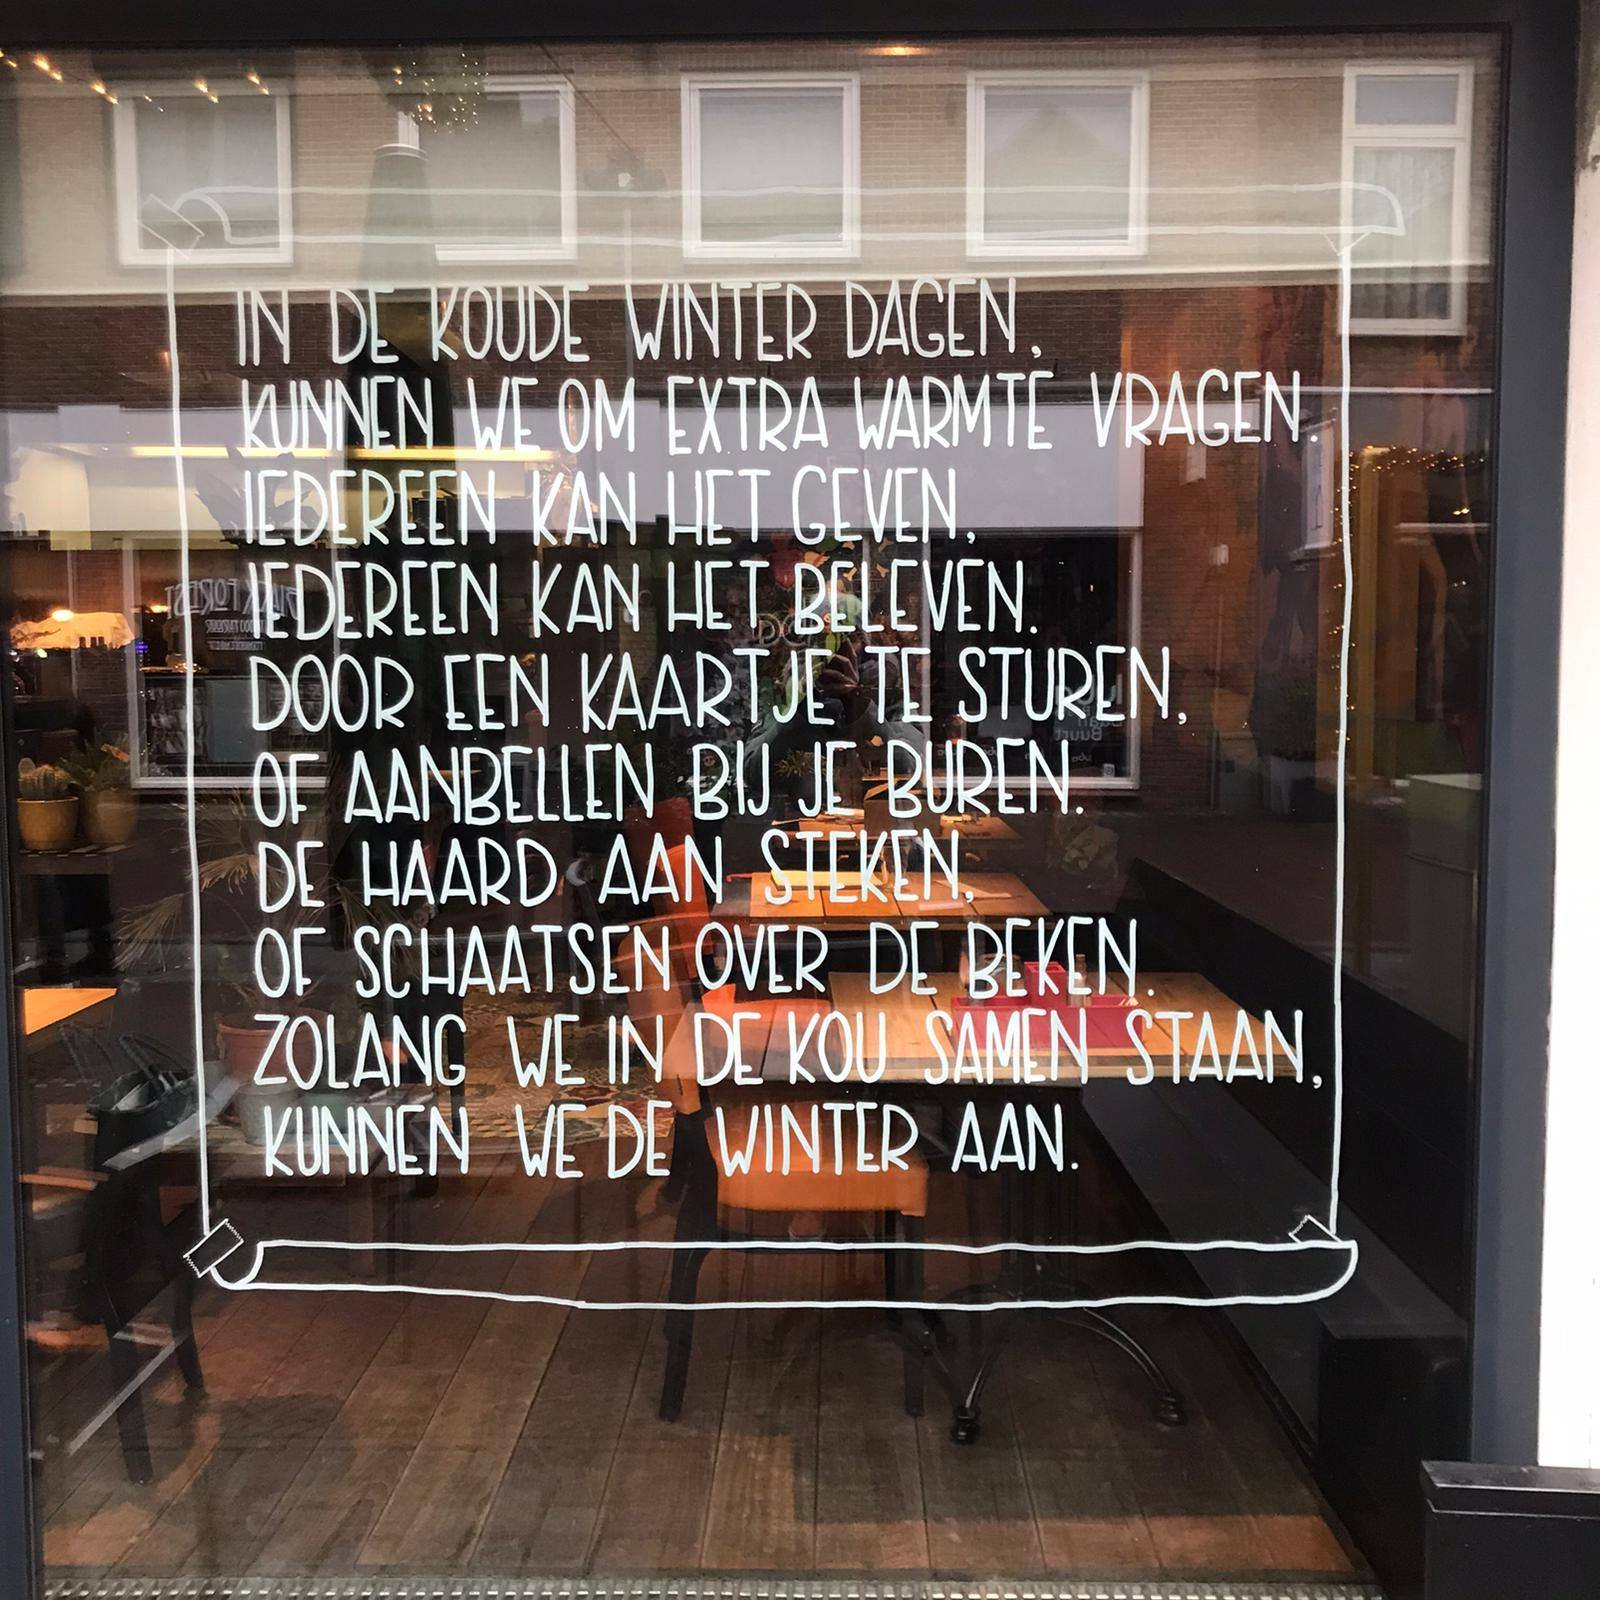 IN DE KOUDE WINTER DAGEN,
KUNNEN WE OM EXTRA WARMTE VRAGEN.
IEDEREEN KAN HET GEVEN,
IEDEREEN KAN HET BELEVEN.
DOOR EEN KAARTJE TE STUREN,
OF AANBELLEN BIJ JE BUREN.
DE HAARD AAN STEKEN,
OF SCHAATSEN OVER DE BEKEN.
ZOLANG WE IN DE KOU SAMEN STAAN,
KUNNEN WE DE WINTER AAN.